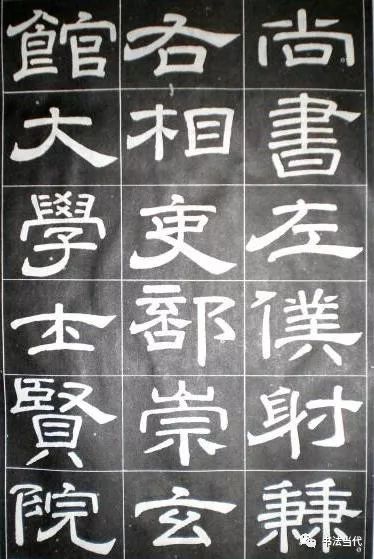 尚書左僕射兼
右相吏部崇玄
館大學士賢院
书法当代